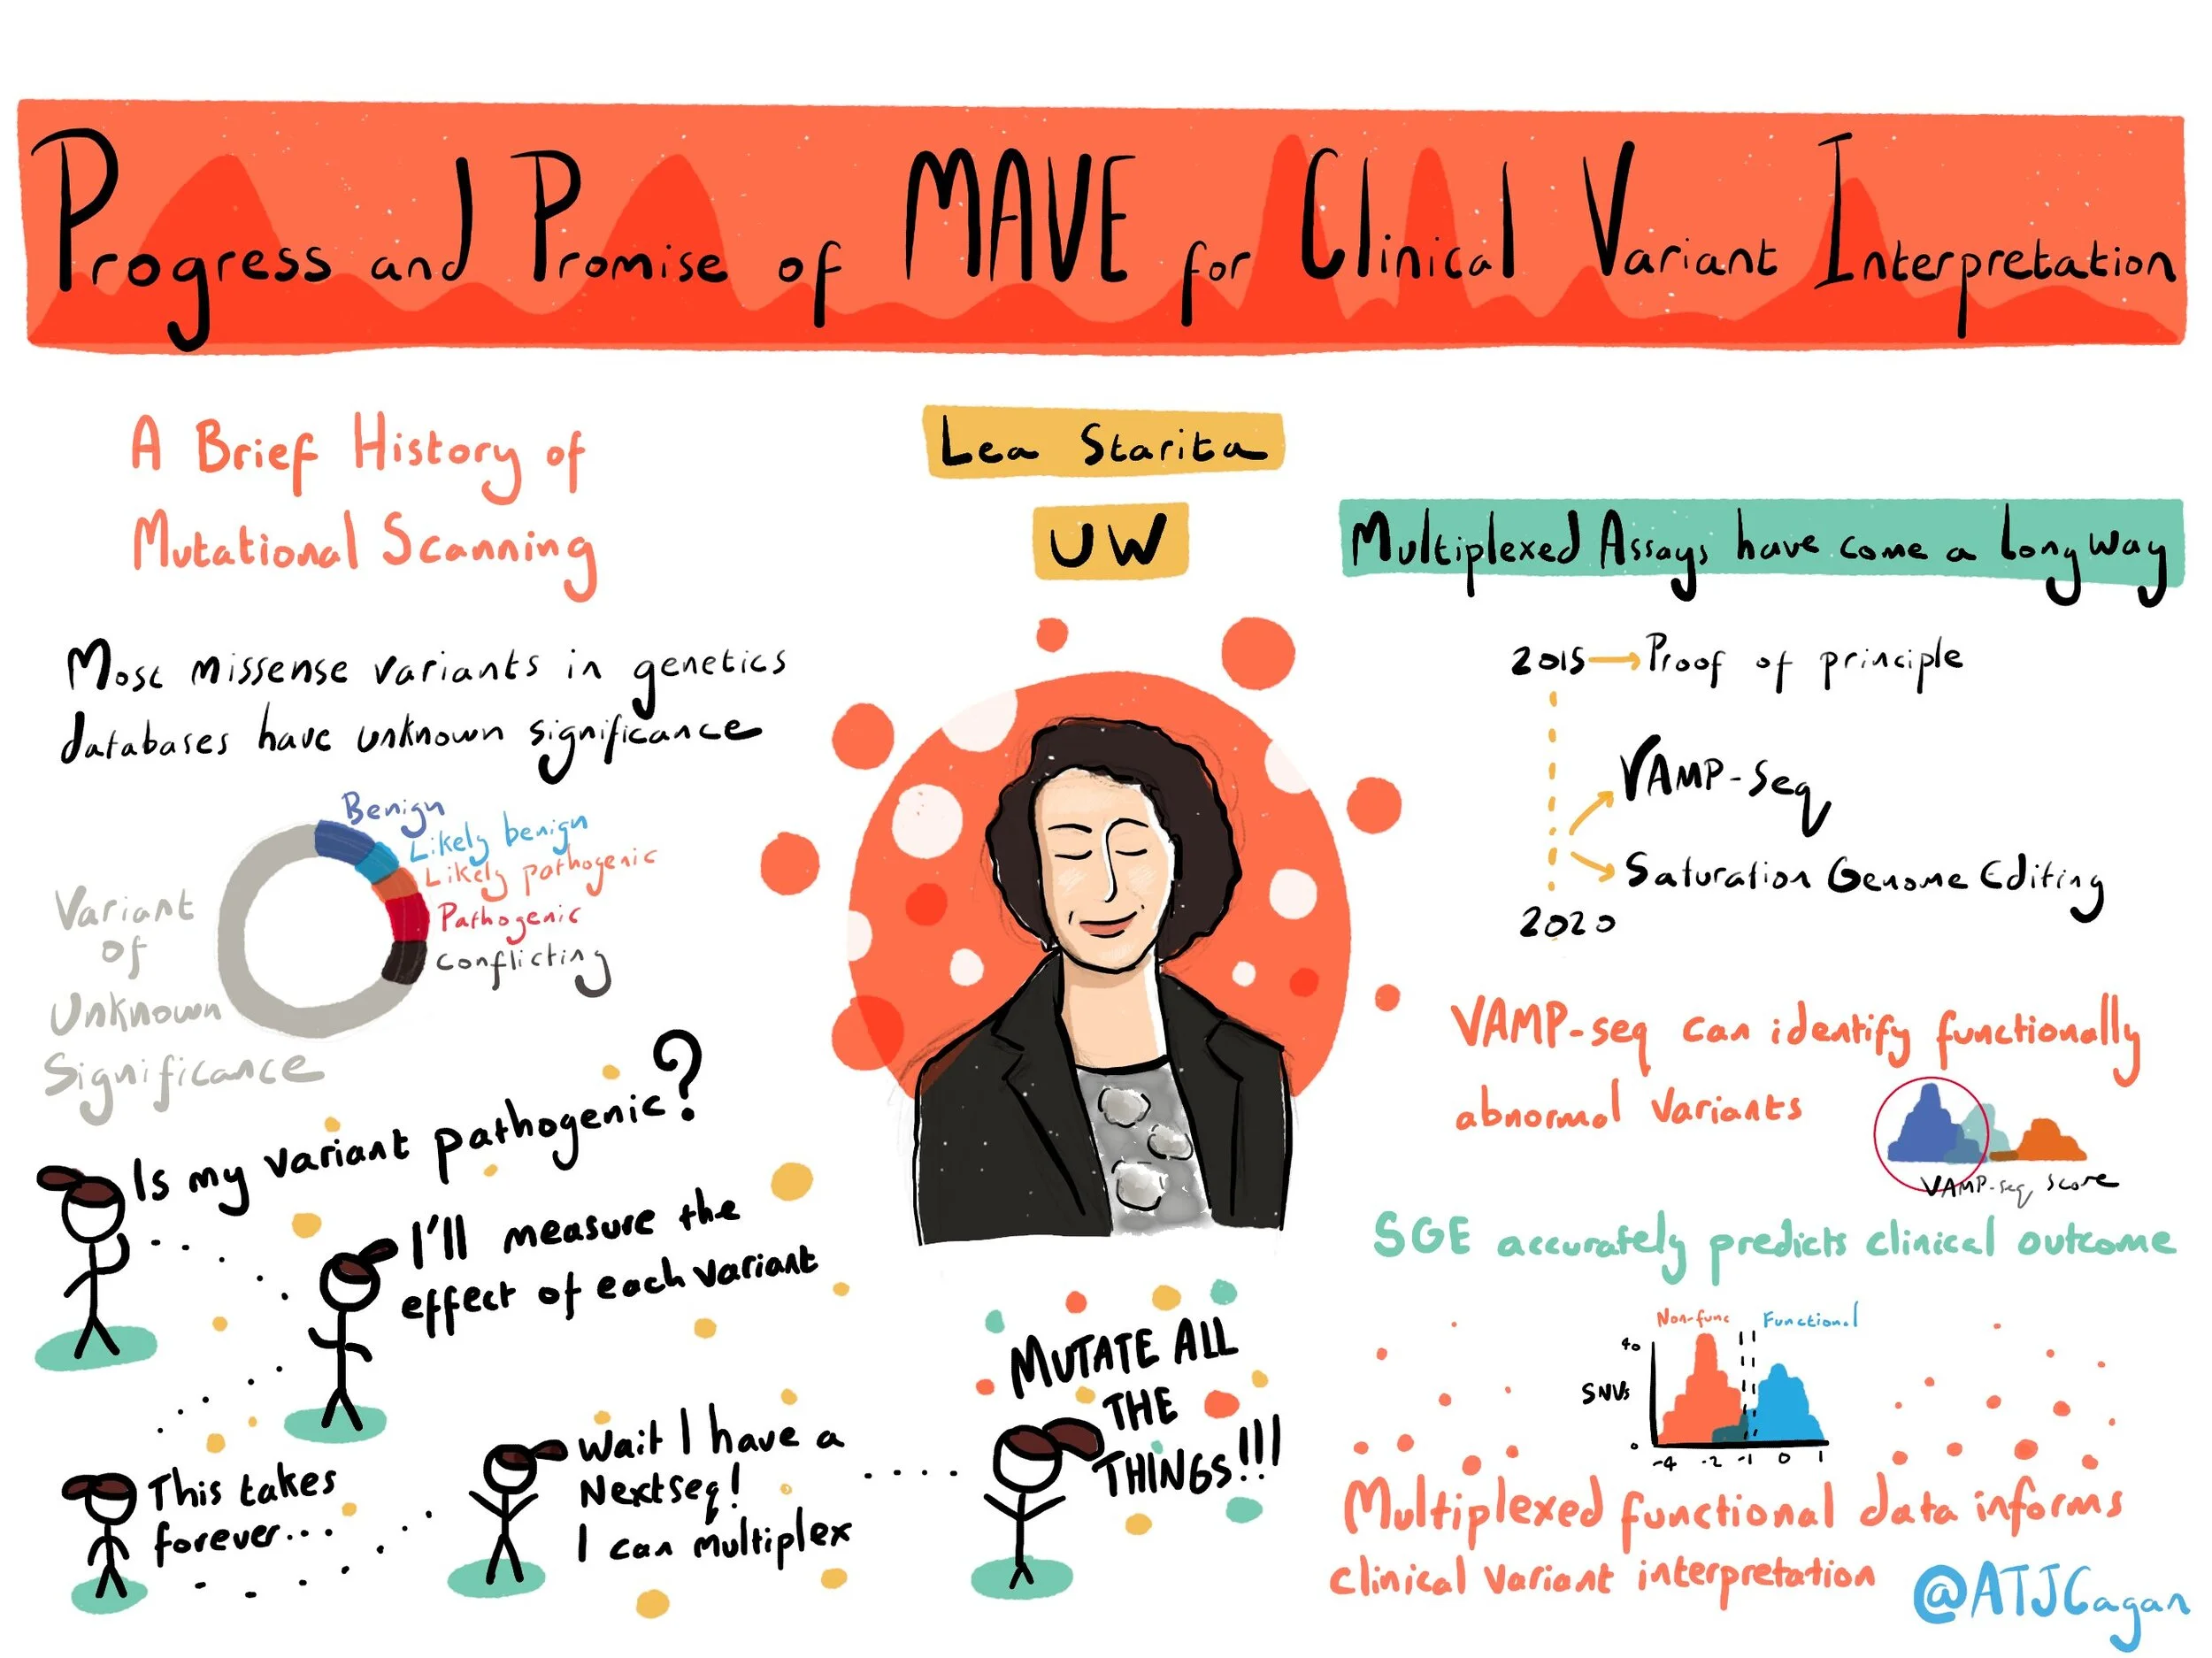 Progress and Promise of MAVE for Clinical Variant Interpretation
A Brief History of
Mutational Scanning
Most missense variants in genetics
databases have unknown significance
Benign
Likely benign
Likely pathogenic
Pathogenic
Conflicting
Variant
of
Unknown
Significance
Is my variant pathogenic?
I'll measure the
effect of each variant
This takes
forever...
Wait I have a
Nextseq!
I can multiplex
MUTATE ALL
THE
THINGS!!!
Lea Starita
UW
Multiplexed Assays have come a long way
2015 → Proof of principle
VAMP-seq
Saturation Genome Editing
2020
VAMP-seq can identify functionally
abnormal variants
VAMP-seq score
SGE accurately predicts clinical outcome
Non-func Functional
40
SNVs
0
-4 -2 -1 0 1
Multiplexed functional data informs
clinical variant interpretation
@ATJCagan